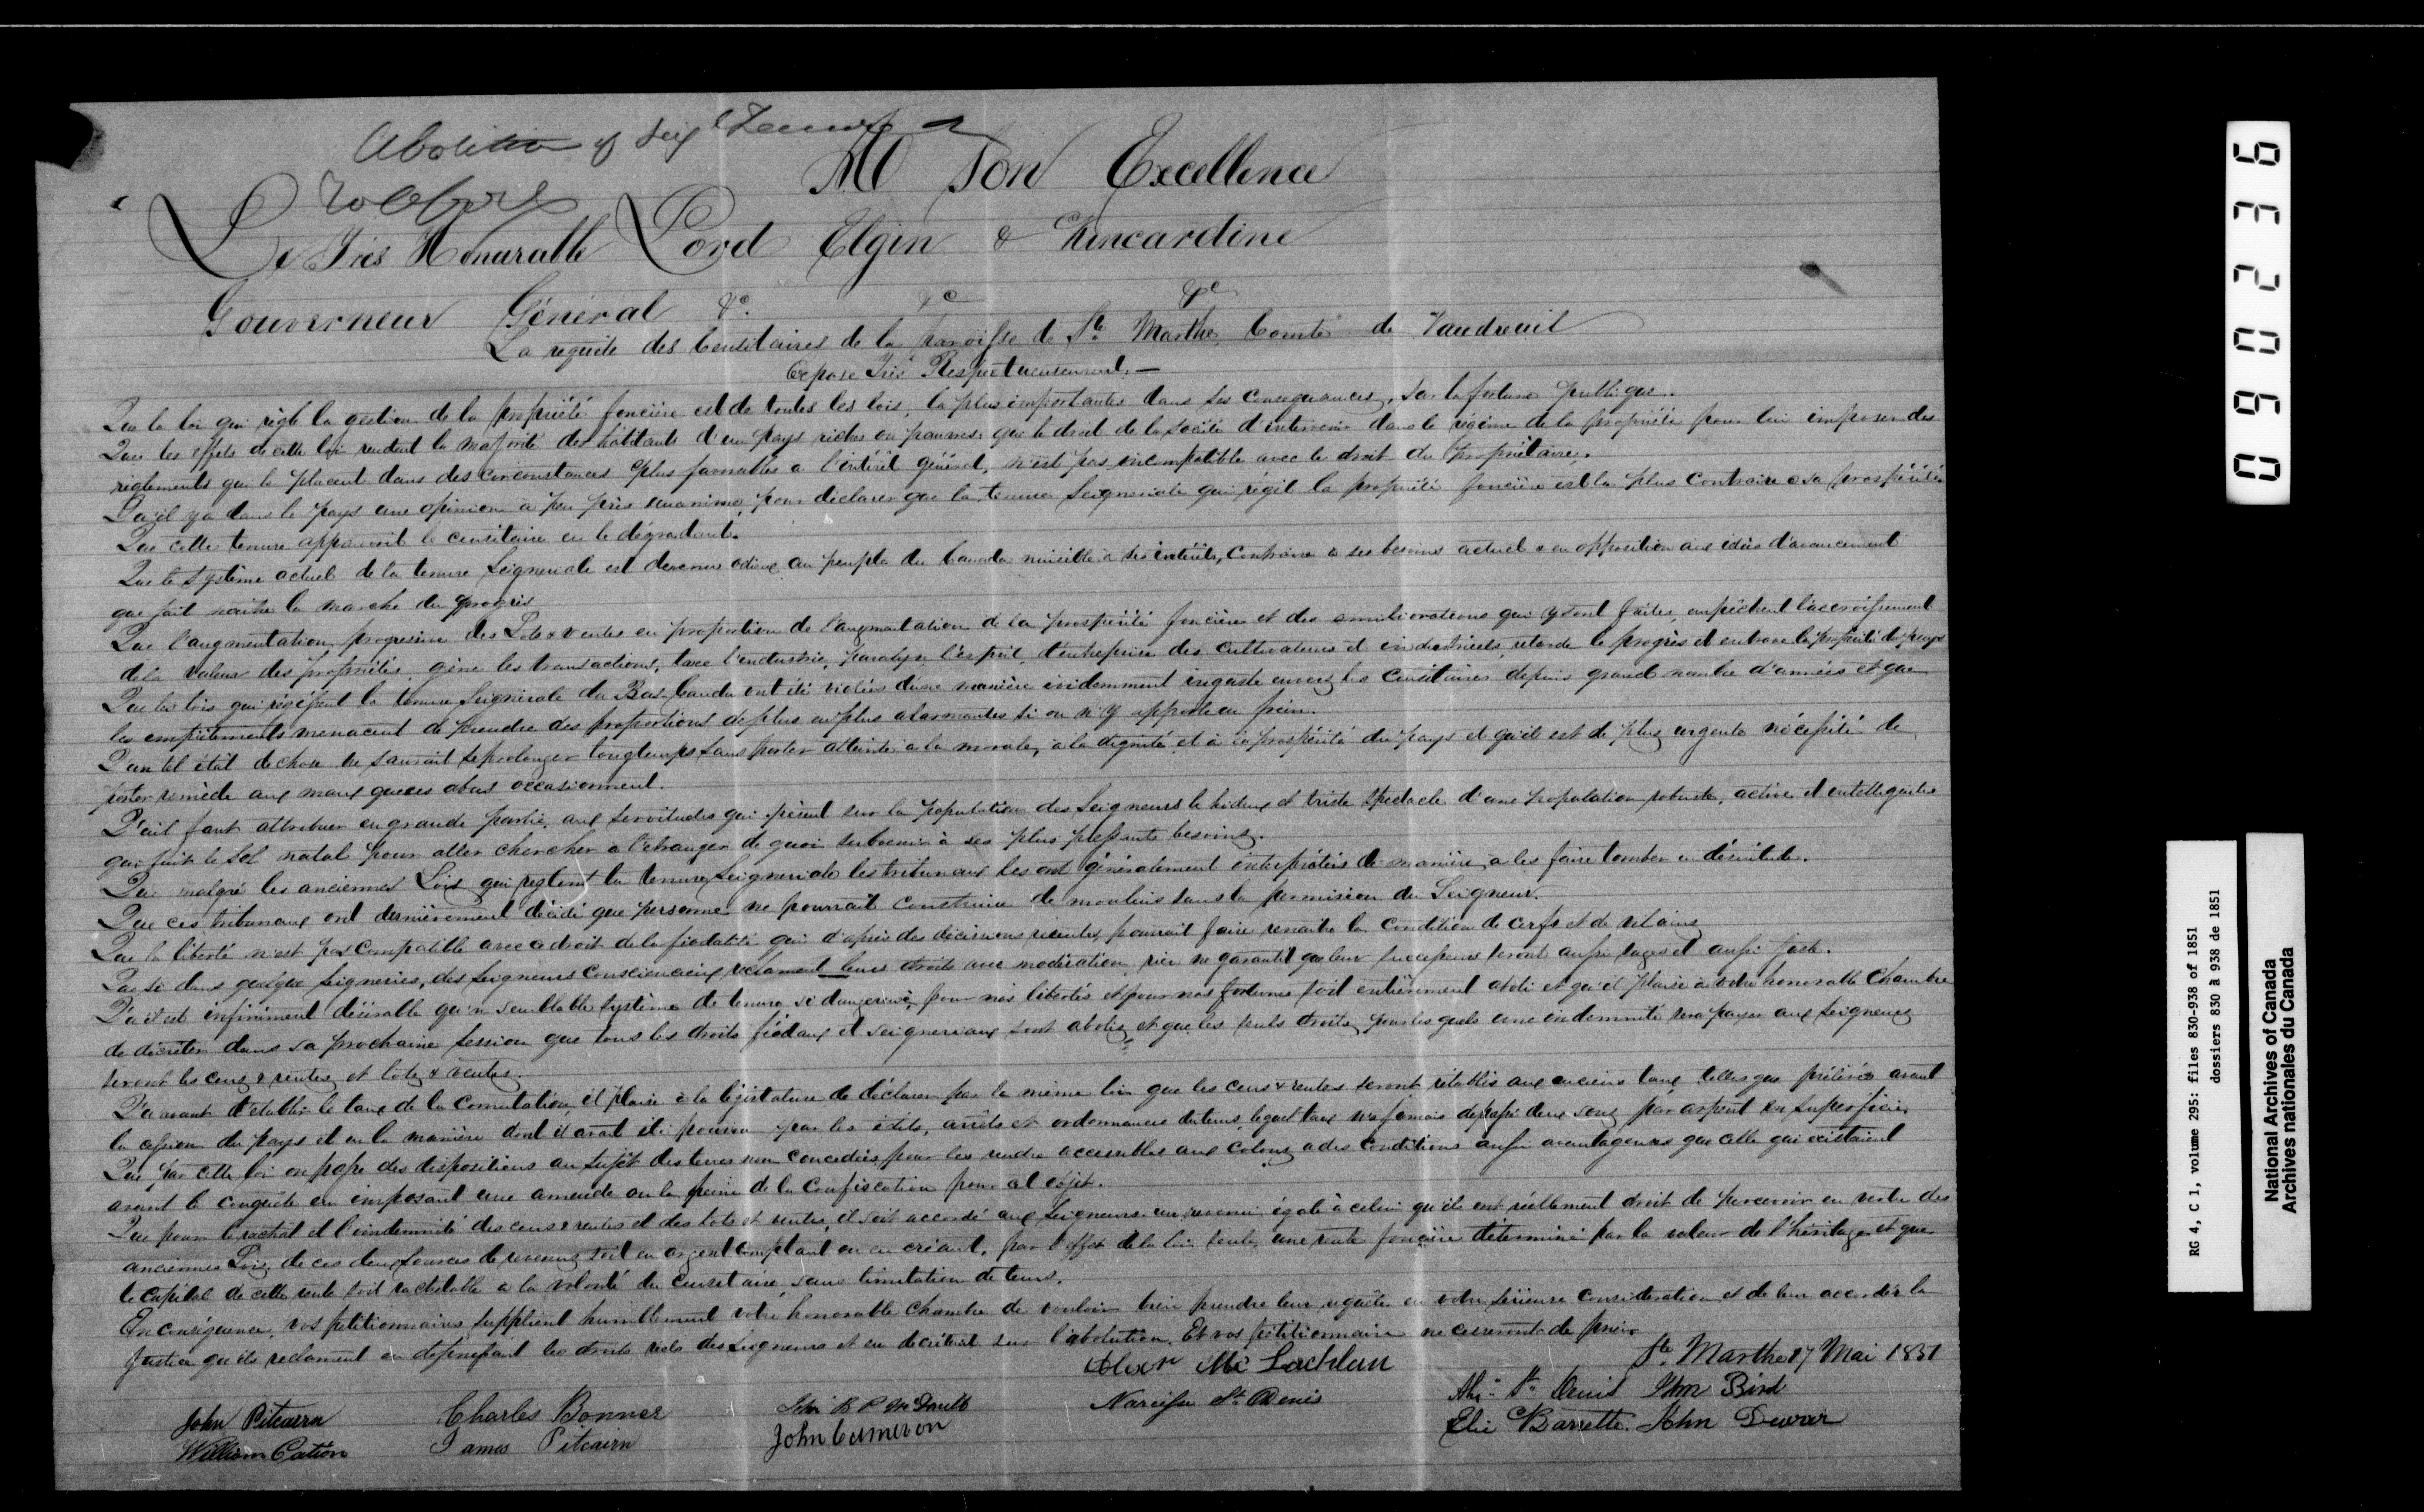 Abolition of Seigl Tenure
A Son Excellence
Le Très Honurable Lord Elgin & Kincardine
Gouverneur Général &c. &c &c
La requête des Censitaires de la paroisse de Ste Marthe, Comté de Vaudreuil
Expose Très Respectueusement. —
Que la loi qui règle la gestion de la propriété foncière est de toutes les lois, la plus importantes dans ses consequances, sur la fortune publique.
Que les effets de cette loi rendent la majorité des habitants d'un pays riches ou pauvres, que le droit de la Société d'intervenir dans le régime de la propriété pour lui imposer des
reglements qui la placent dans des circonstances plus favorables a l'intérêt général, n'est pas incompatible avec le droit du propriétaire.
Qu'il y a dans le pays une opinion à peu près unanime, pour déclarer que la tenure Seigneuriale qui régit la propriété foncière est la plus contraire a sa prospérité
Que cette tenure appauvrit le censitaire en le dégradant.
Que le Système actuel de la tenure Seigneuriale est devenu odieux au peuple du Canada nuisible à ses intérêts, contraire a ses besoins actuel & en opposition aux idées d'avancement
que fait naitre la marche du progrès
Que l'augmentation progresive des Lots & ventes en proportion de l'augmentation de la prospérité foncière et des améliorations qui y sont faites, empêchent l'accroissement
de la valeur des propriétés, gêne les transactions, taxe l'industrie, paralyse l'esprit d'entreprise des cultivateurs et industriels, retarde le progrès et entrave la prospérité du pays
Que les lois qui régissent la tenure Seigneuriale du Bas-Canada ont été violées d'une manière évidemment injuste envers les Censitaires depuis grand nombre d'années et que
les empiètements menacent de prendre des proportions de plus en plus alarmantes si on n'y apporte un frein.
Qu'un tel état de chose ne saurait se prolonger longtemps sans porter atteinte a la morale, à la dignité et à la prospérité du pays et qu'il est de plus urgente nécessité de
porter remède aux maux que ces abus occasionnent.
Qu'il faut attribuer en grande partie, aux servitudes qui pèsent sur la population des Seigneurs le hideux et triste spectacle d'une population robuste, active et intelligente
qui fuit le sol natal pour aller chercher a l'etranger de quoi subvenir à ses plus pressants besoins.
Que malgré les anciennes Lois qui reglent la tenure Seigneuriale les tribunaux les ont généralement interprétées de manière à les faire tomber en désuétude.
Que ces tribunaux ont dernièrement décidé que personne ne pourrait construire de moulins sans la permision du Seigneur.
Que la liberté n'est pas compatible avec ce droit de la féodalité qui d'après des décisions récentes, pourrait faire renaitre la condition de cerfs et de vilains
Que si dans quelque Seigneries, des Seigneurs Consciencieux reclament leurs droits avec modération, rien ne garantit que leur successeurs seront aussi sages et aussi juste.
Qu'il est infiniment désirable qu'un semblable système de tenure si dangereux, pour nos libertés et pour nos fortunes soit entièrement aboli et qu'il plaise à votre honorable Chambre
de décréter dans sa prochaine session que tous les droits féodaux et seigneuriaux sont abolis et que les seuls droits pour les quels une indemnité sera payer aux Seigneurs
seront les cens & rentes et lots & ventes.
Qu'avant d'établir le taux de la Comutation, il plaise à la législature de déclarer par la même loi que les cens & rentes seront rétablis aux anciens taux telles que prélevés avant
la cession du pays et en la manière dont il avait été pourvu par les édits, arrêts et ordonnances du tems, lequel taux n'a jamais depassé deux sous par arpent en superficie.
Que par cette loi on passe des dispositions au sujet des terres non concedées, pour les rendre accessibles aux Colons a des conditions aussi avantageuses que celle qui existaient
avant la conquête en imposant une amende ou la peine de la Confiscation pour cet objet.
Que pour le rachat et l'indemnité des cens & rentes et des lots et ventes, il soit accordé aux Seigneurs un revenu égale à celui qu'ils ont réellement droit de percevoir en vertu des
anciennes Lois, de ces deux sources de revenus soit en argent comptant ou en créant, par l'effet de la loi seule, une rente foncière déterminé par la valeur de l'héritage et que
le capital de cette rente soit rachetable a la volonté du Censitaire, sans limitation de tems.
En conséquence, vos petitionnaires supplient humblement votre honorable Chambre de vouloir bien prendre leur requête en votre sérieuse consideration et de leur accorder la
justice qu'ils reclament en definissant les droits réels des Seigneurs et en décrétant sur l'abolution. Et vos pétitionnaire ne cesseront de prier
Ste Marthe 17 Mai 1851
Alexr Mc Lachlan
John Pitcairn Charles Bonner Narcisse St Denis St Denis John Bird
William Catton James Pitcairn John Cameron Elie Barrette. John Dewar
090236
RG 4, C 1, volume 295: files 830-938 of 1851
dossiers 830 à 938 de 1851
National Archives of Canada
Archives nationales du Canada